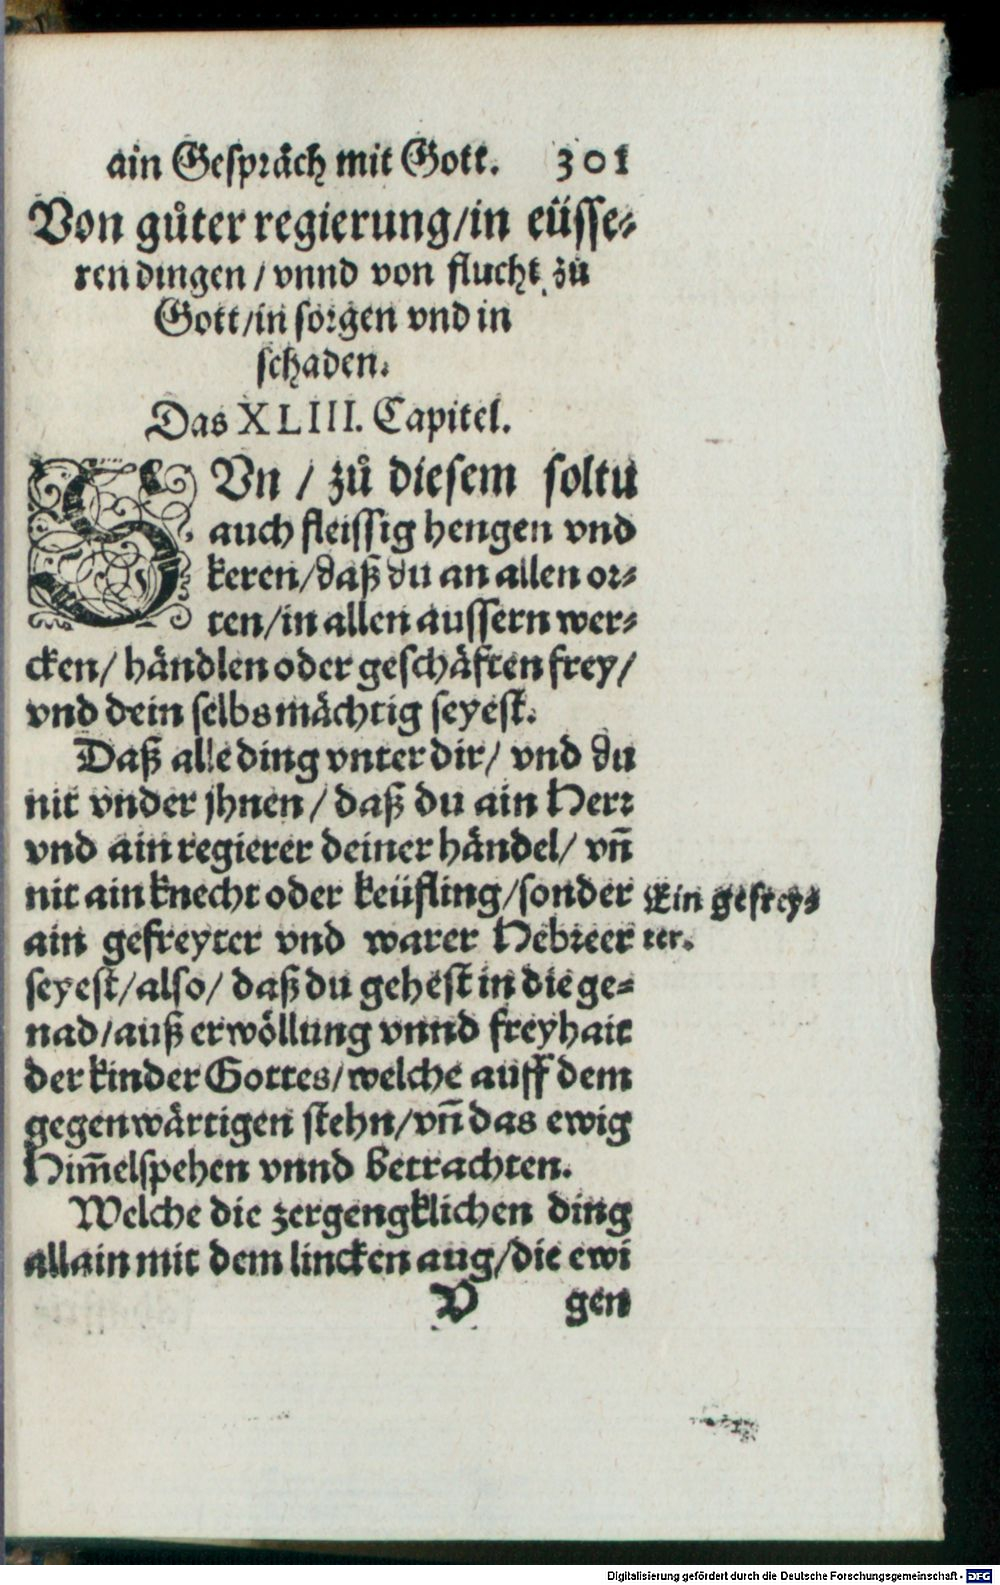 ain Gespräch mit Gott. 301
Von gůter regierung/in eüsse⸗
ren dingen/vnnd von flucht zů
Gott/in sorgen vnd in
schaden.
Das XLIII. Capitel.
SVn/zů diesem soltu
auch fleissig hengen vnd
keren/daß du an allen or⸗
ten/in allen aussern wer⸗
cken/händlen oder geschäften frey/
vnd dein selbs mächtig seyest.
Daß alle ding vnter dir/vnd du
nit vnder jhnen/daß du ain Herr
vnd ain regierer deiner händel/vn̄
nit ain knecht oder keüfling/sonder
ain gefreyter vnd warer Hebreer
Ein gefrey⸗
ter.
seyest/also/daß du gehest in die ge⸗
nad/auß erwöllung vnnd freyhait
der kinder Gottes/welche auff dem
gegenwärtigen stehn/vn̄ das ewig
Him̄elspehen vnnd betrachten.
Welche die zergengklichen ding
allain mit dem lincken aug/die ewi
V gen
Digitalisierung gefördert durch die Deutsche Forschungsgemeinschaft - DFG